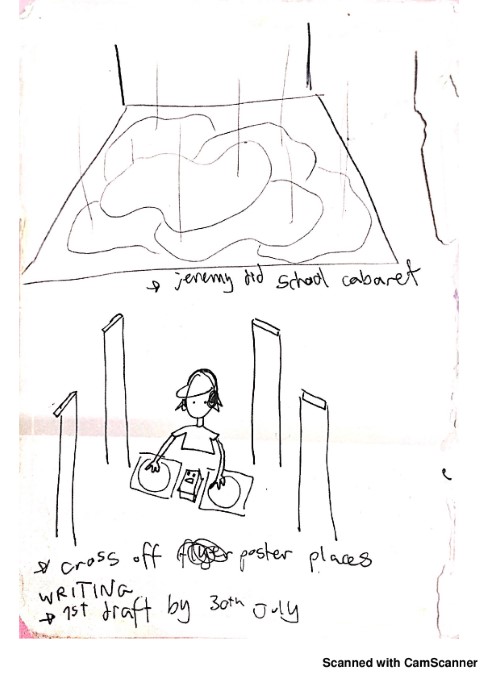 → jeremy did school cabaret
→ cross off poster places
WRITING
→ 1st draft by 30th July
Scanned with CamScanner